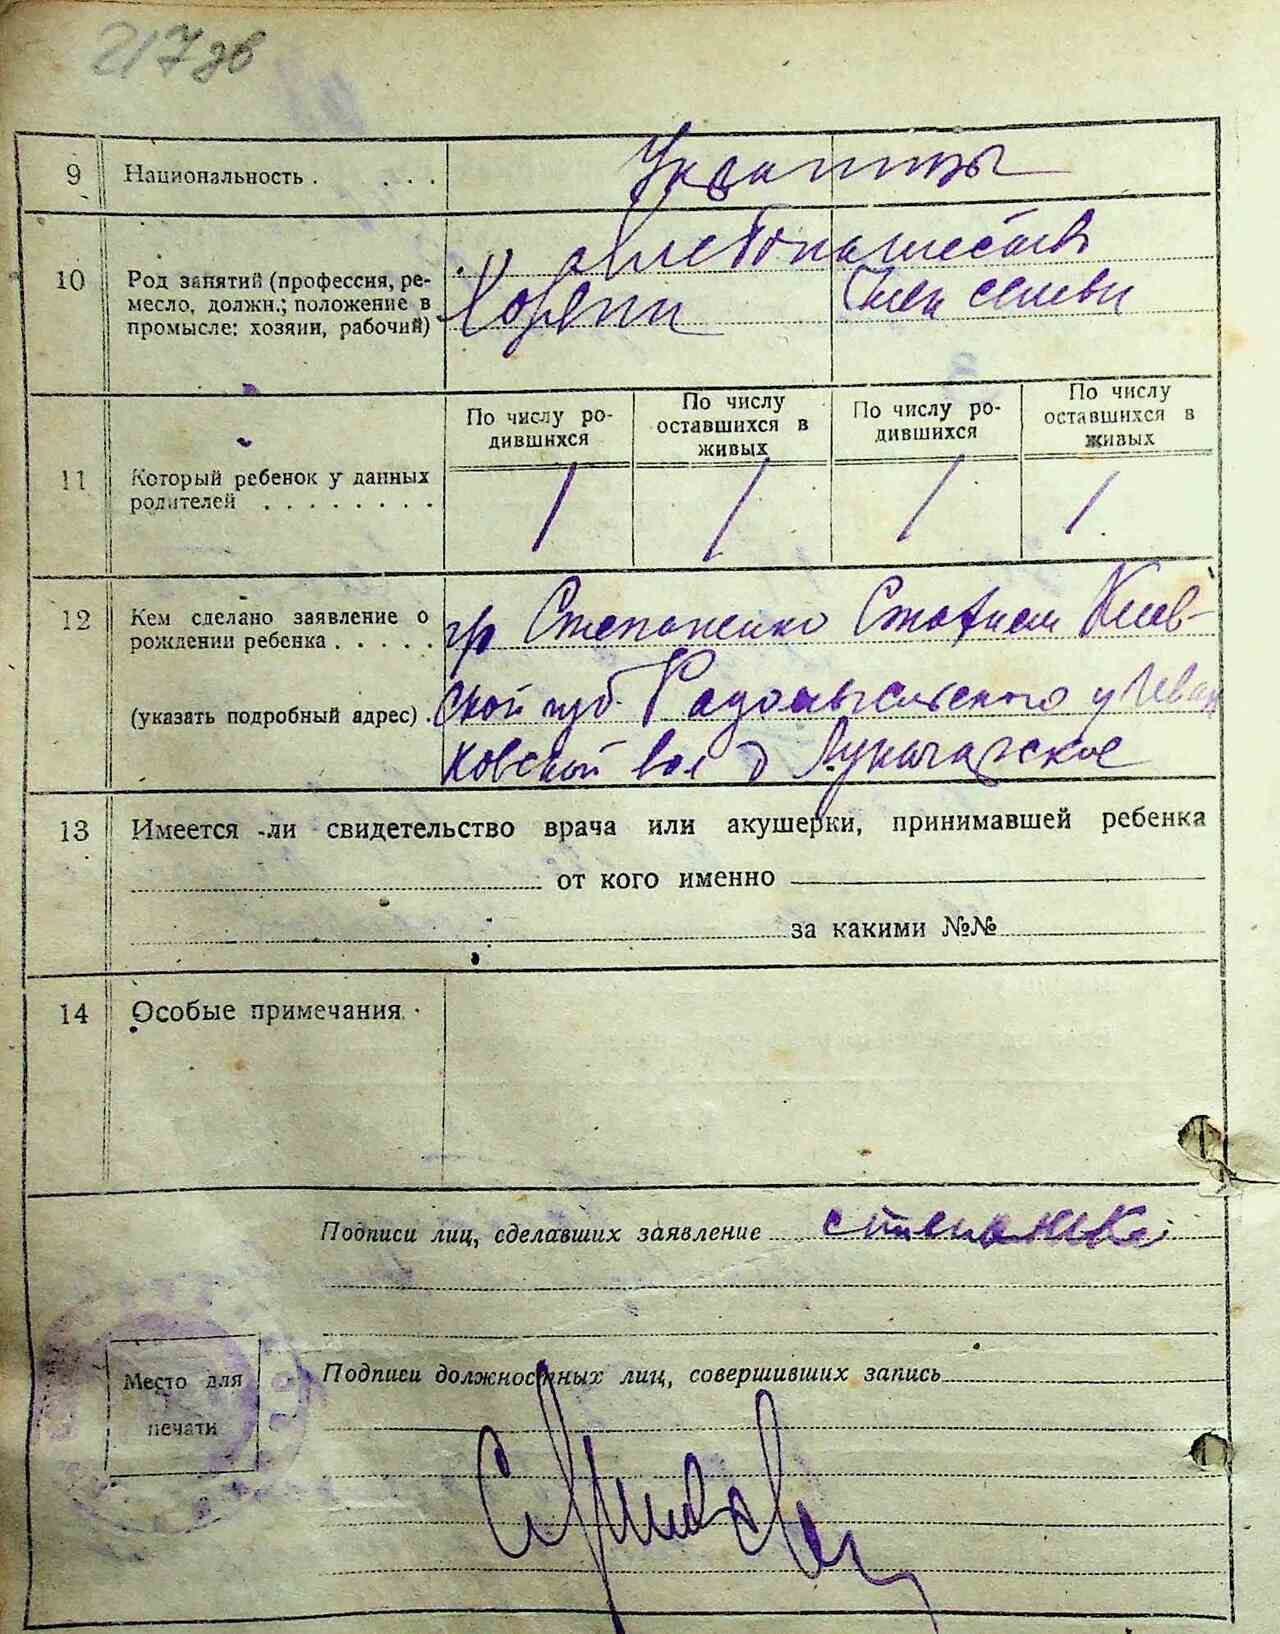 217 зв
9 Национальность . . . . Украинцы
10 Род занятий (профессия, ре-
месло, должн.; положение в
промысле: хозяин, рабочий)
Хлебопашество
Хозяин Член семьи
11 Который ребенок у данных
родителей . . . . . . . .
По числу ро-
дившихся
По числу
оставшихся в
живых
По числу ро-
дившихся
По числу
оставшихся в
живых
1 1 1 1
12 Кем сделано заявление о
рождении ребенка . . . . .
(указать подробный адрес) .
гр Степаненко Киев-
ской губ. Радомысльского у Иван
ковской вол д
13 Имеется ли свидетельство врача или акушерки, принимавшей ребенка
от кого именно
за какими №№
14 Особые примечания .
Подписи лиц, сделавших заявление
Место для
печати
Подписи должностных лиц, совершивших запись